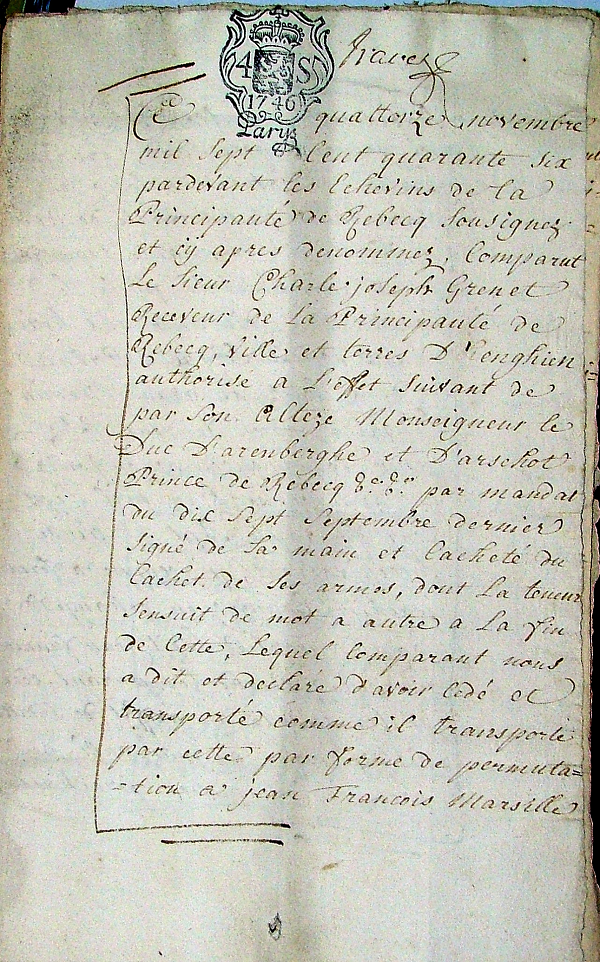 4 S
1746
Parijs
Ce quattorze novembre
mil sept Cent quarante six
pardevant les Echevins de la
Principauté de Rebecq Sousignez
et cy apres denommez, Comparut
Le Sieur Charle joseph Grenet
Receveur de la Principauté de
Rebecq, ville et terres D'Enghien
authorise a L'effet Suivant de
par Son Alteze Monseigneur le
Duc D'arenberghe et D'arschot
Prince de Rebecq &a. &a. par mandat
du dix Sept Septembre dernier
signé de Sa main et Cacheté du
Cachet de Ses armes, dont La teneur
Sensuit de mot a autre a La fin
de Cette, Lequel Comparant nous
a dit et declare d'avoir Cedé et
transporté comme il transporte
par cette par forme de permuta=
=tion a jean Francois Marsille